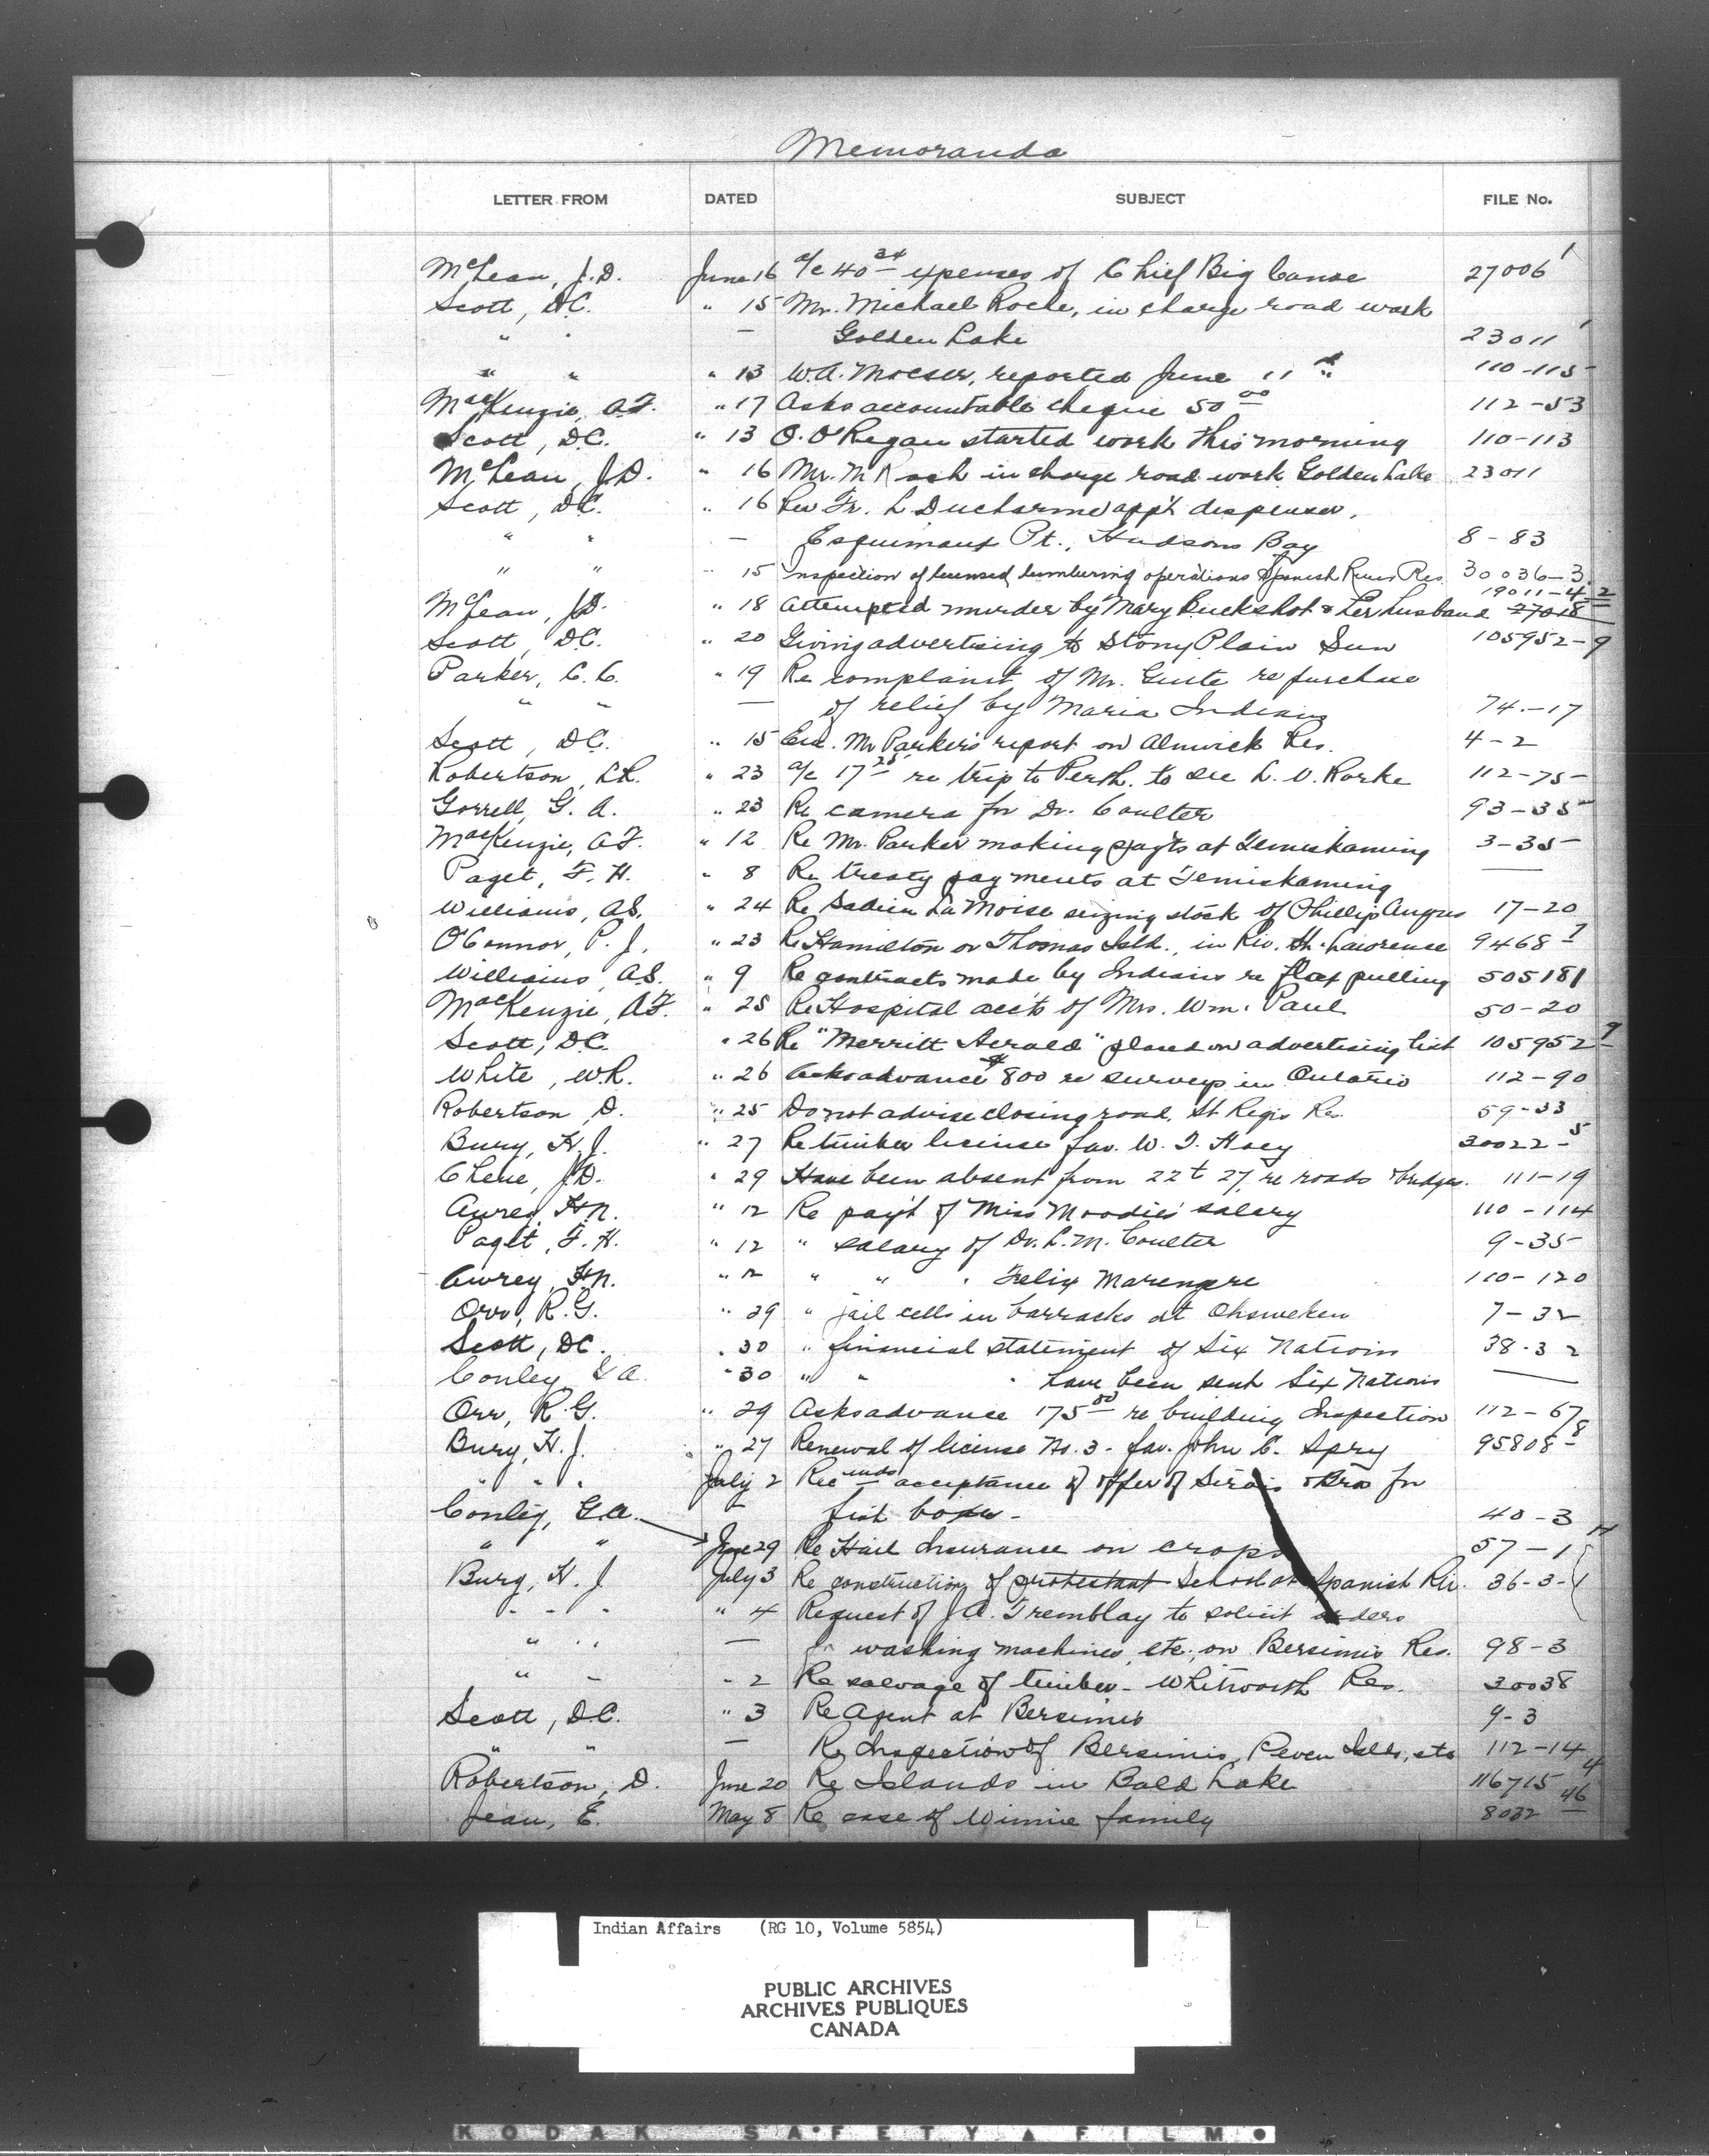 Memoranda
LETTER FROM DATED SUBJECT FILE No.
McLean, J.D. June 16 a/c 40 24 expenses of Chief Big Canoe 27006 1
Scott, D.C. " 15 Mr. Michael Roche, in charge road work
" " — Golden Lake 23011 1
" " " 13 W.A. Moeser, reported June 11 th 110-115
MacKenzie, A.F. " 17 Asks accountable cheque 50 00 112-53
Scott, D.C. " 13 O. O'Regan started work this morning 110-113
McLean, J.D. " 16 Mr. M Roch in charge road work Golden Lake 23011
Scott, D.C. " 16 Rev Fr. L Ducharme app't dispenser,
" " — Esquimaux Pt., Hudsons Bay 8-83
" " " 15 Inspection of licensed lumbering operations Spanish River Res. 30036-3
19011-4 2
McLean, J.D. " 18 Attempted murder by Mary Buckshot & her husband 27018
Scott, D.C. " 20 Giving advertising to Stony Plain Sun 105952-9
Parker, C.C. " 19 Re complaint of Mr. Guite re purchase
" " — of relief by Maria Indians 74-17
Scott, D.C. " 15 Enc. Mr Parker's report on Alnwick Res. 4-2
Robertson, L.R. " 23 a/c 17 25 re trip to Perth to see L. O. Rorke 112-75
Gorrell, G. A. " 23 Re camera for Dr. Coulter 93-35
MacKenzie, A.F. " 12 Re Mr. Parker making pay'ts at Temiskaming 3-35
Paget, F. H. " 8 Re treaty payments at Temiskaming —
Williams, A.S. " 24 Re La Moise seizing stock of Phillip Angus 17-20
O'Connor, P. J. " 23 Re Hamilton or Thomas Isld., in Riv. St. Lawrence 9468 7
Williams, A.S. " 9 Re contracts made by Indians re flax pulling 505181
MacKenzie, A.F. " 25 Re Hospital acc'ts of Mrs. Wm. Paul 50-20
Scott, D.C. " 26 Re "Merritt Herald" placed on advertising list 105952 9
White, W.R. " 26 Asks advance $800 re surveys in Ontario 112-90
Robertson, D. " 25 Do not advise closing road, St Regis Res. 59-33
Bury, H.J. " 27 Re timber license fav. W. T. Hoey 30022-5
Chene, J.D. " 29 Have been absent from 22 to 27, re roads & bridges. 111-19
Awrey, H.N. " 12 Re pay't of Miss Moodie's salary 110-114
Paget, F. H. " 12 " salary of Dr. L.M. Coulter 9-35
Awrey, H.N. " 12 " " " Felix Marengere 110-120
Orr, R.G. " 29 " jail cells in barracks at Ohsweken 7-32
Scott, D.C. " 30 " financial statement of Six Nations 38-32
Conley, G.A. " 30 " " " have been sent Six Nations —
Orr, R.G. " 29 Asks advance 175 00 re building Inspection 112-67
Bury, H.J. " 27 Renewal of license No. 3. fav. John C. Spry 95808-8
" " " July 2 Recmnds acceptance of offer of Sirois & Bros for
fish boxes - 40-3
Conley, G.A.
" " June 29 Re Hail Insurance on crops 57-1
Bury, H. J. July 3 Re construction of protestant School at Spanish Riv. 36-3-1
" " " " 4 Request of J.A. Tremblay to solicit orders
" " — for washing machines, etc., on Bersimis Res. 98-3
" " " 2 Re salvage of timber - Whitworth Res. 30038
Scott, D.C. " 3 Re Agent at Bersimis 9-3
" " — Re Inspection of Bersimis, Seven Islds, etc 112-14
Robertson, D. June 20 Re Islands in Bald Lake 116715 4
Jean, E. May 8 Re case of Winnie family 8032 46
Indian Affairs (RG 10, Volume 5854)
PUBLIC ARCHIVES
ARCHIVES PUBLIQUES
CANADA
KODAK SAFETY FILM